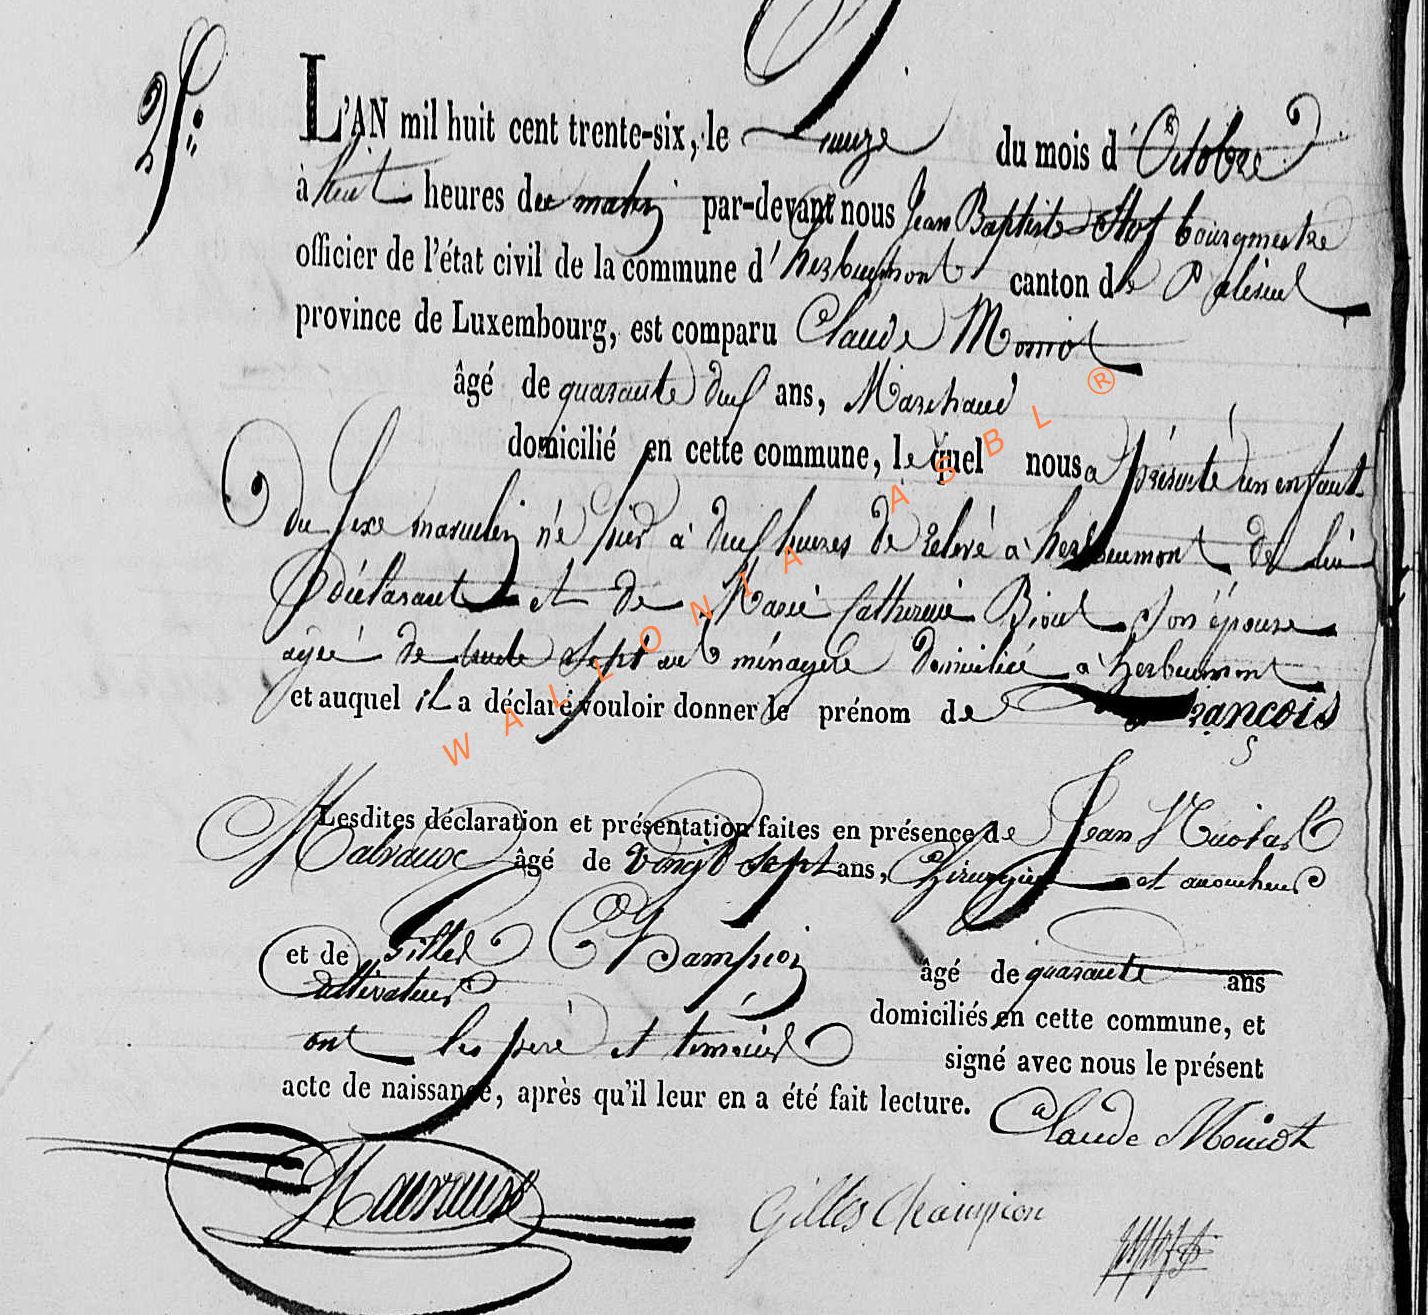 L'AN mil huit cent trente-six, le quinze du mois d'Octobre
à huit heures du matin par-devant nous Jean Baptiste bourgmestre
officier de l'état civil de la commune d'herbeumont canton de Paliseul
province de Luxembourg, est comparu Claude Moniot
âgé de quarante deuf ans, Marchand
domicilié en cette commune, le quel nous a présenté un enfant
du sexe masculin né hier à deuf heures de relevé à herbeumont de lui
déclarant et de Marie Catherine son épouse
agée de trente sept ans ménagere domiciliée à herbeumont
et auquel il a déclaré vouloir donner le prénom de François
Lesdites déclaration et présentation faites en présence de Jean Nicolas
Mabvaux âgé de vingt sept ans, Chirurgien et accoucheur
et de Gilles Champion âgé de quarante ans
Cultivateur
domiciliés en cette commune, et
ont les père et temoins signé avec nous le présent
acte de naissance, après qu'il leur en a été fait lecture.
Claude Moniot
Gilles Champion
WALLONIA ASBL ®